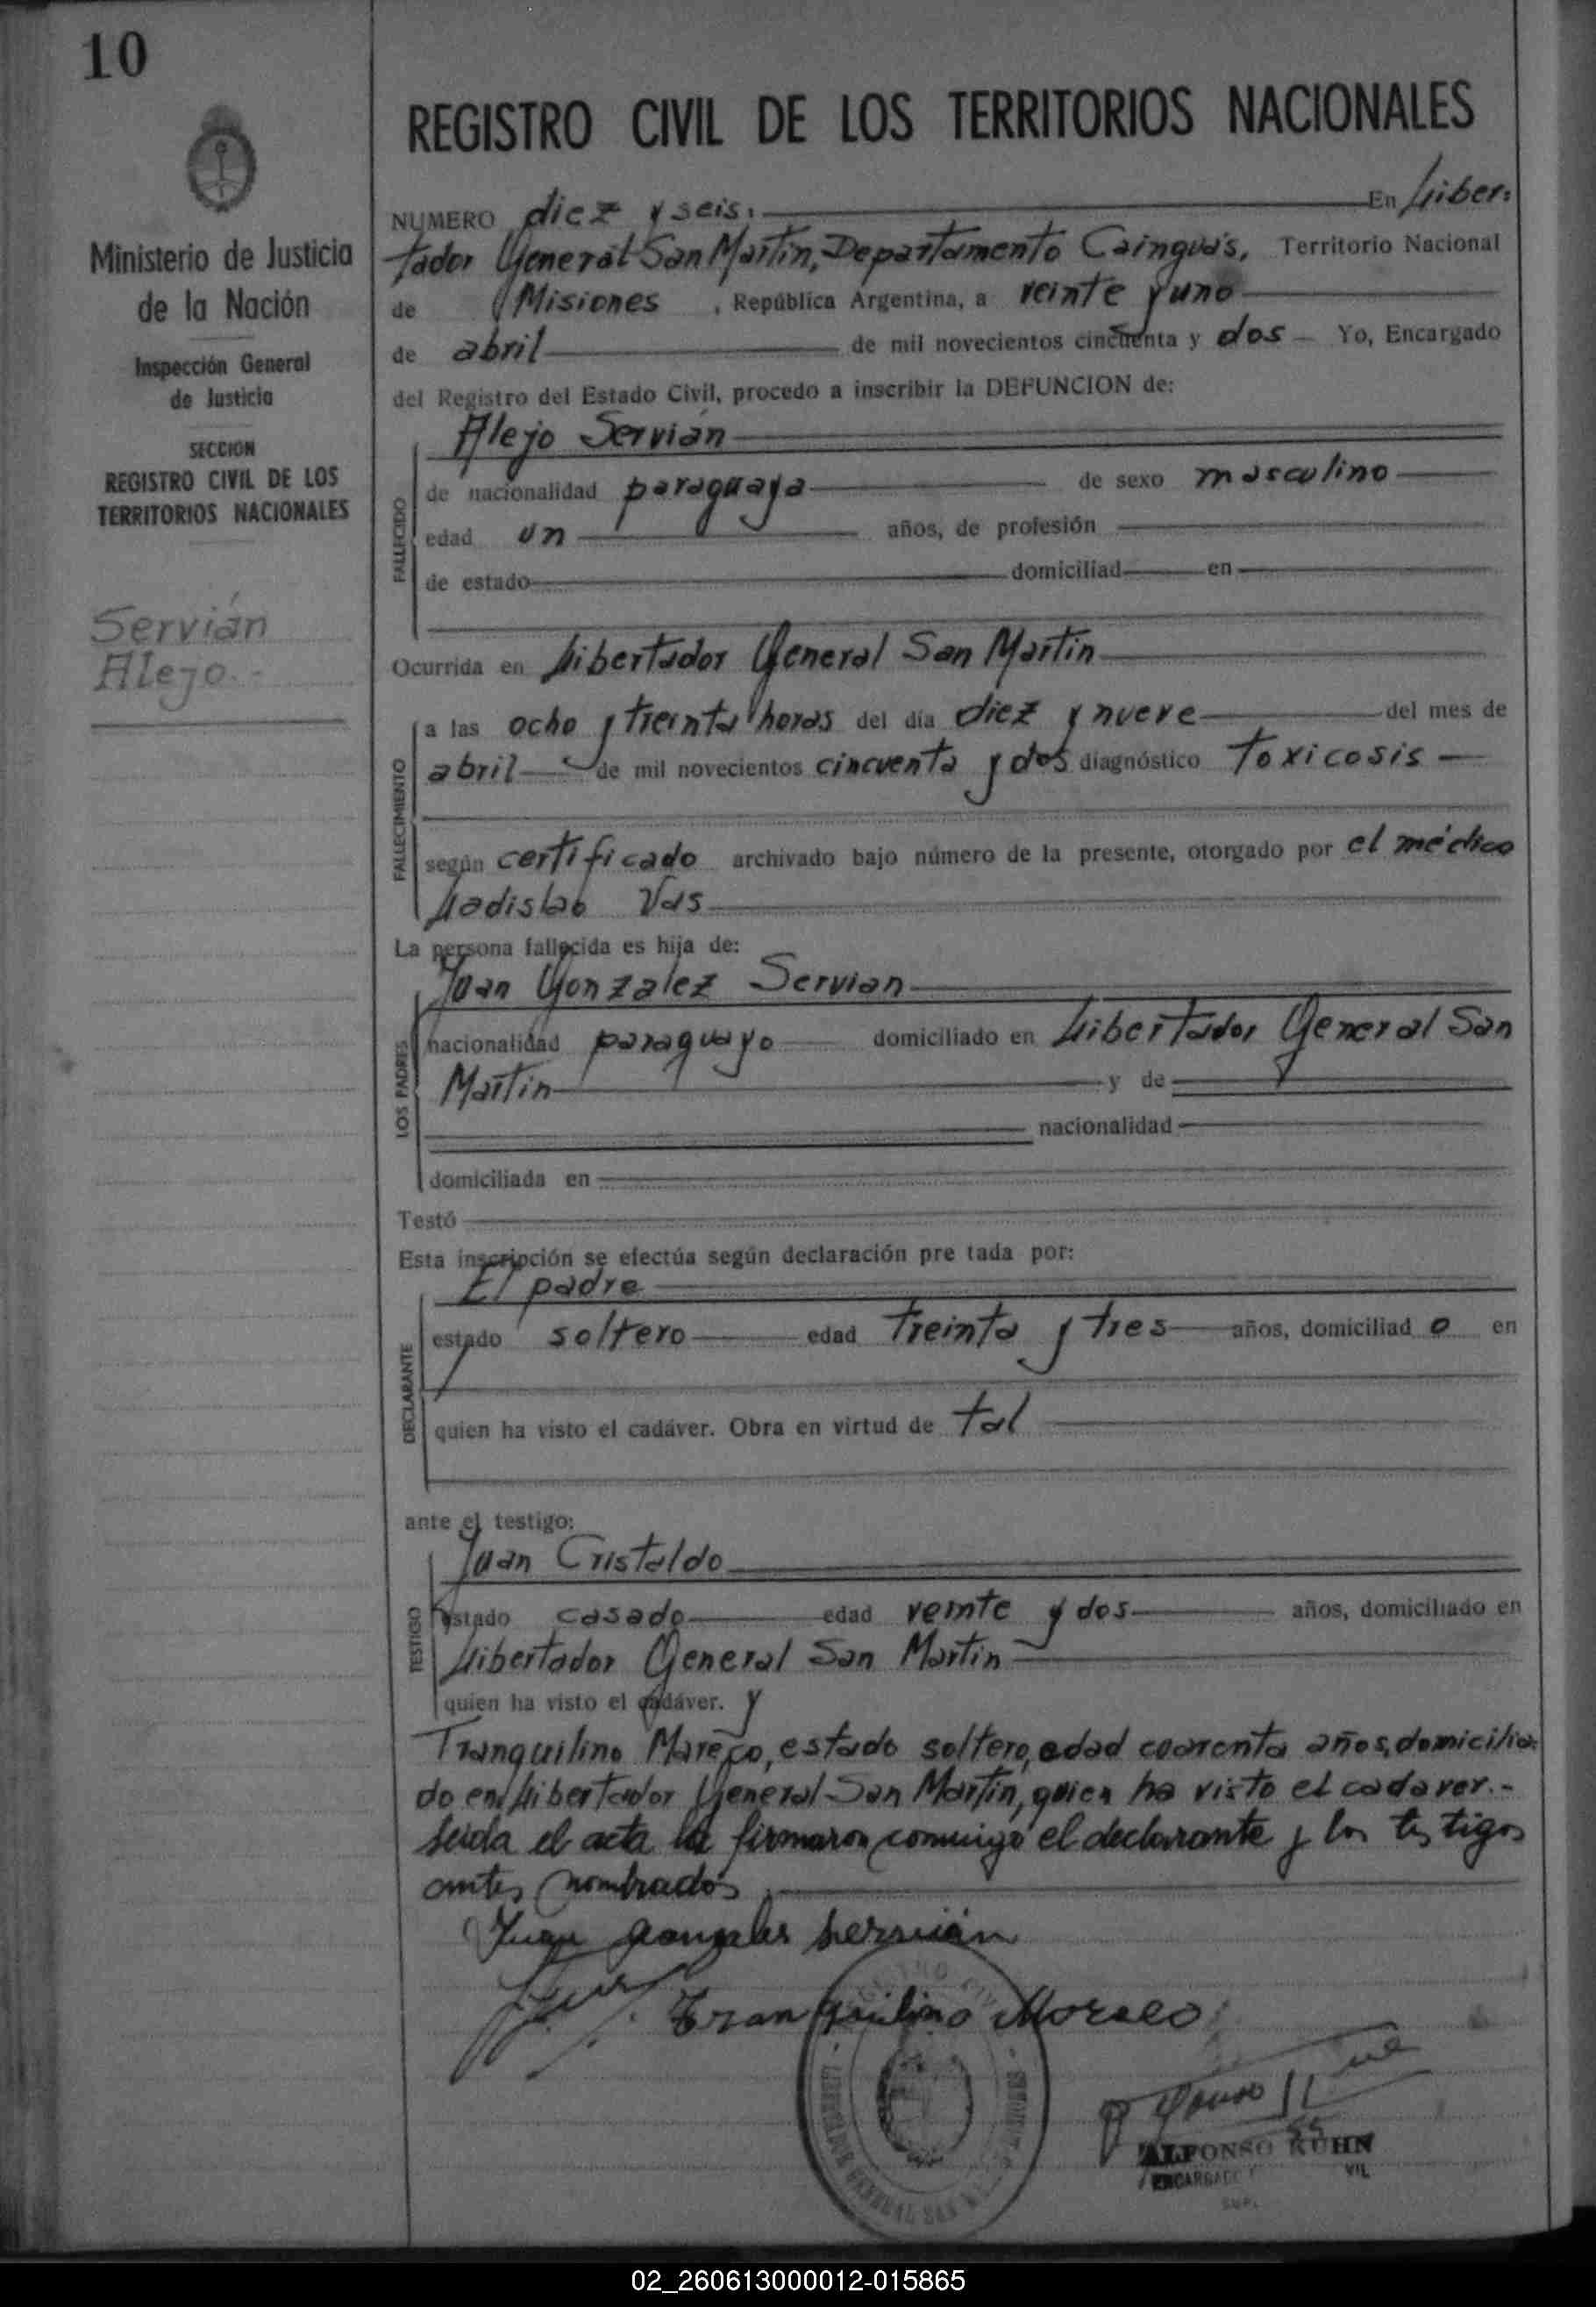 10
Ministerio de Justicia
de la Nación
Inspección General
de Justicia
SECCION
REGISTRO CIVIL DE LOS
TERRITORIOS NACIONALES
Servián
Alejo.-
REGISTRO CIVIL DE LOS TERRITORIOS NACIONALES
NUMERO diez y seis. En Liber-
tador General San Martín, Departamento Cainguás, Territorio Nacional
de Misiones, República Argentina, a veinte y uno
de abril de mil novecientos cincuenta y dos Yo, Encargado
del Registro del Estado Civil, procedo a inscribir la DEFUNCION de:
Alejo Servián
FALLECIDO
de nacionalidad paraguaya de sexo masculino
edad un años, de profesión
de estado domiciliad en
Ocurrida en Libertador General San Martín
FALLECIMIENTO
a las ocho y treinta horas del día diez y nueve del mes de
abril de mil novecientos cincuenta y dos diagnóstico toxicosis
según certificado archivado bajo número de la presente, otorgado por el médico
Ladislao Vas
La persona fallecida es hija de:
LOS PADRES
Juan Gonzalez Servian
nacionalidad paraguayo domiciliado en Libertador General San
Martín y de
nacionalidad
domiciliada en
Testó
Esta inscripción se efectúa según declaración pre tada por:
DECLARANTE
El padre
estado soltero edad treinta y tres años, domiciliad o en
quien ha visto el cadáver. Obra en virtud de tal
ante el testigo:
TESTIGO
Juan Cristaldo
estado casado edad veinte y dos años, domiciliado en
Libertador General San Martín
quien ha visto el cadáver. y
Tranquilino Mareco, estado soltero, edad cuarenta años, domicilia-
do en Libertador General San Martín, quien ha visto el cadaver.-
Leida el acta la firmaron conmigo el declarante y los testigos
antes nombrados
Juan gonzales servián
Tranquilino Moreco
LIBERTADOR GENERAL SAN
ALFONSO KUHN
ENCARGADO
VIL
SUPL
02_260613000012-015865